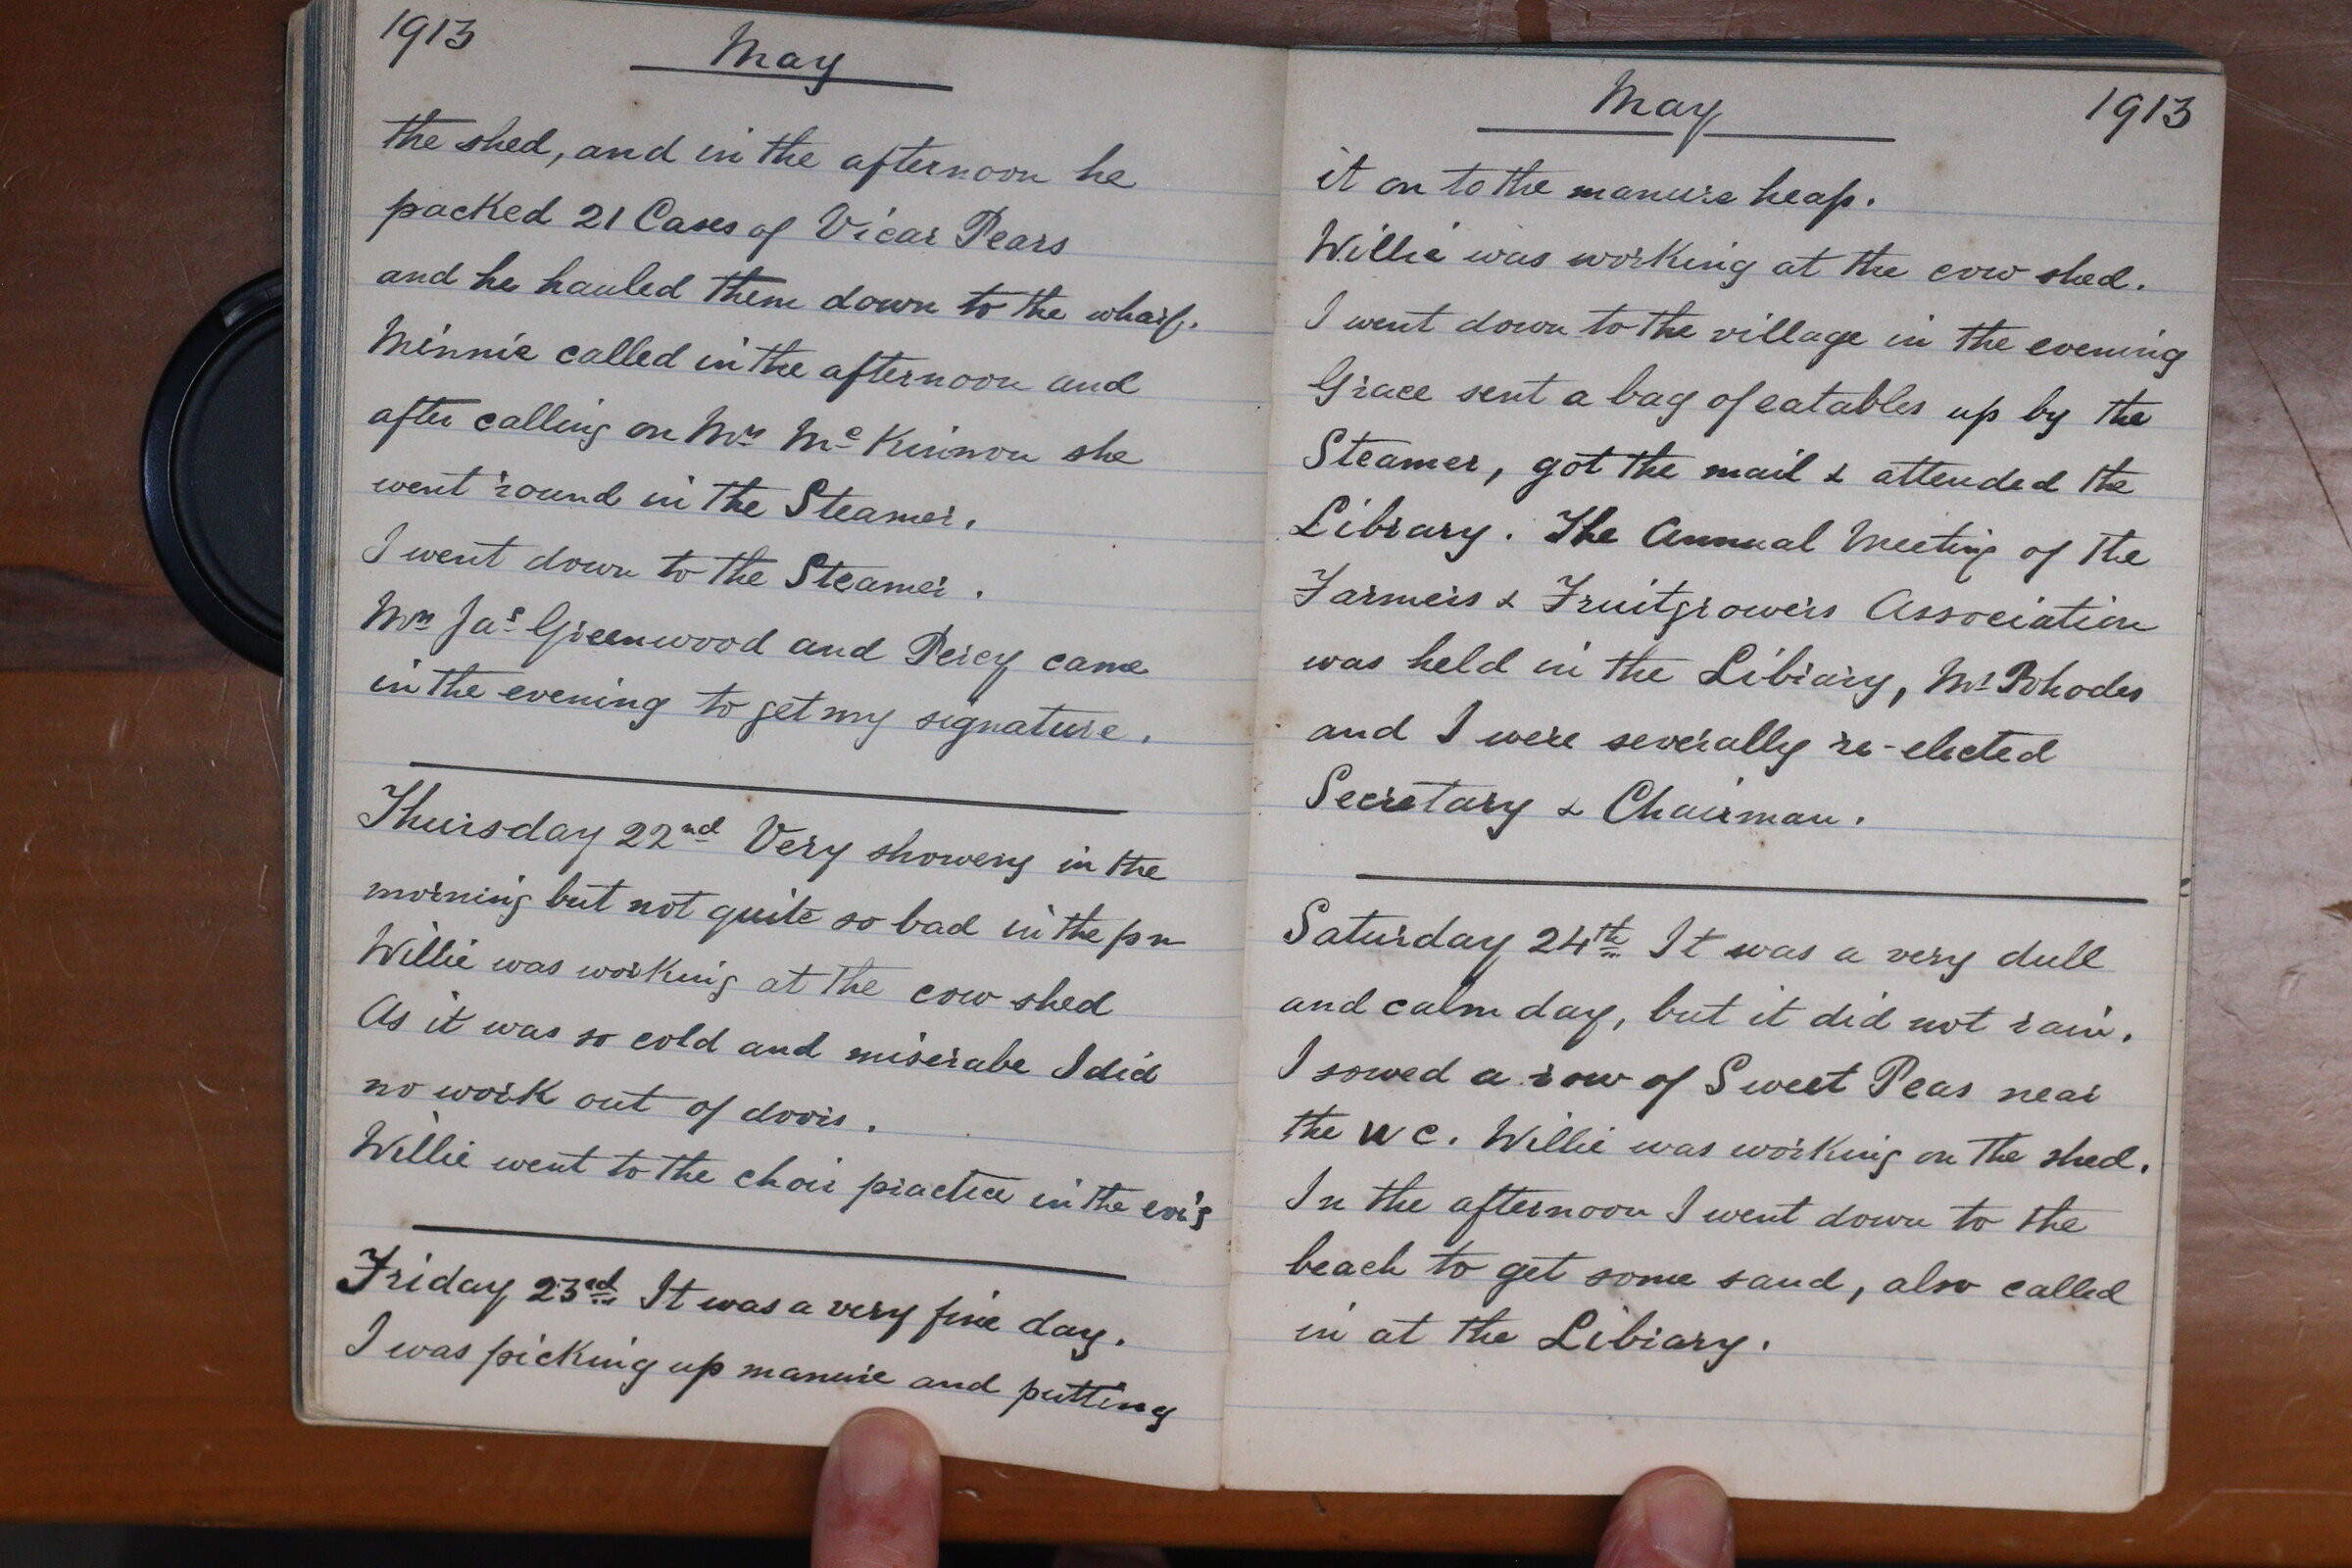 1913
May
the shed, and in the afternoon he
packed 21 Cases of Vicar Pears
and he hauled them down to the wharf.
Minnie called in the afternoon and
after calling on Mrs McKinnon she
went round in the Steamer.
I went down to the Steamer.
Wm Jas Greenwood and Percy came
in the evening to get my signature.
Thursday 22nd Very showery in the
morning but not quite so bad in the pm
Willie was working at the cow shed
As it was so cold and miserabe I did
no work out of doors.
Willie went to the choir practice in the evi'g
Friday 23rd It was a very fine day.
I was picking up manure and putting
May
1913
it on to the manure heap.
Willie was working at the cow shed.
I went down to the village in the evening
Grace sent a bag of eatables up by the
Steamer, got the mail & attended the
Library. The Annual Meeting of the
Farmers & Fruitgrowers Association
was held in the Library, Mr Rhodes
and I were severally re-elected
Secretary & Chairman.
Saturday 24th It was a very dull
and calm day, but it did not rain.
I sowed a row of Sweet Peas near
the W C. Willie was working on the shed.
In the afternoon I went down to the
beach to get some sand, also called
in at the Library.